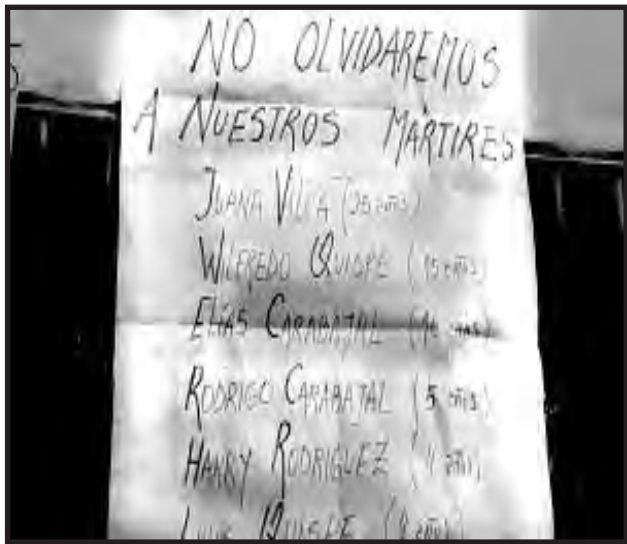 NO OLVIDAREMOS
A NUESTROS MÁRTIRES
JUANA VILCA (25 años)
WILFREDO QUISPE (15 años)
ELÍAS CARABAJAL (10 años)
RODRIGO CARABAJAL (5 años)
HARRY RODRIGUEZ (4 años)
QUISPE